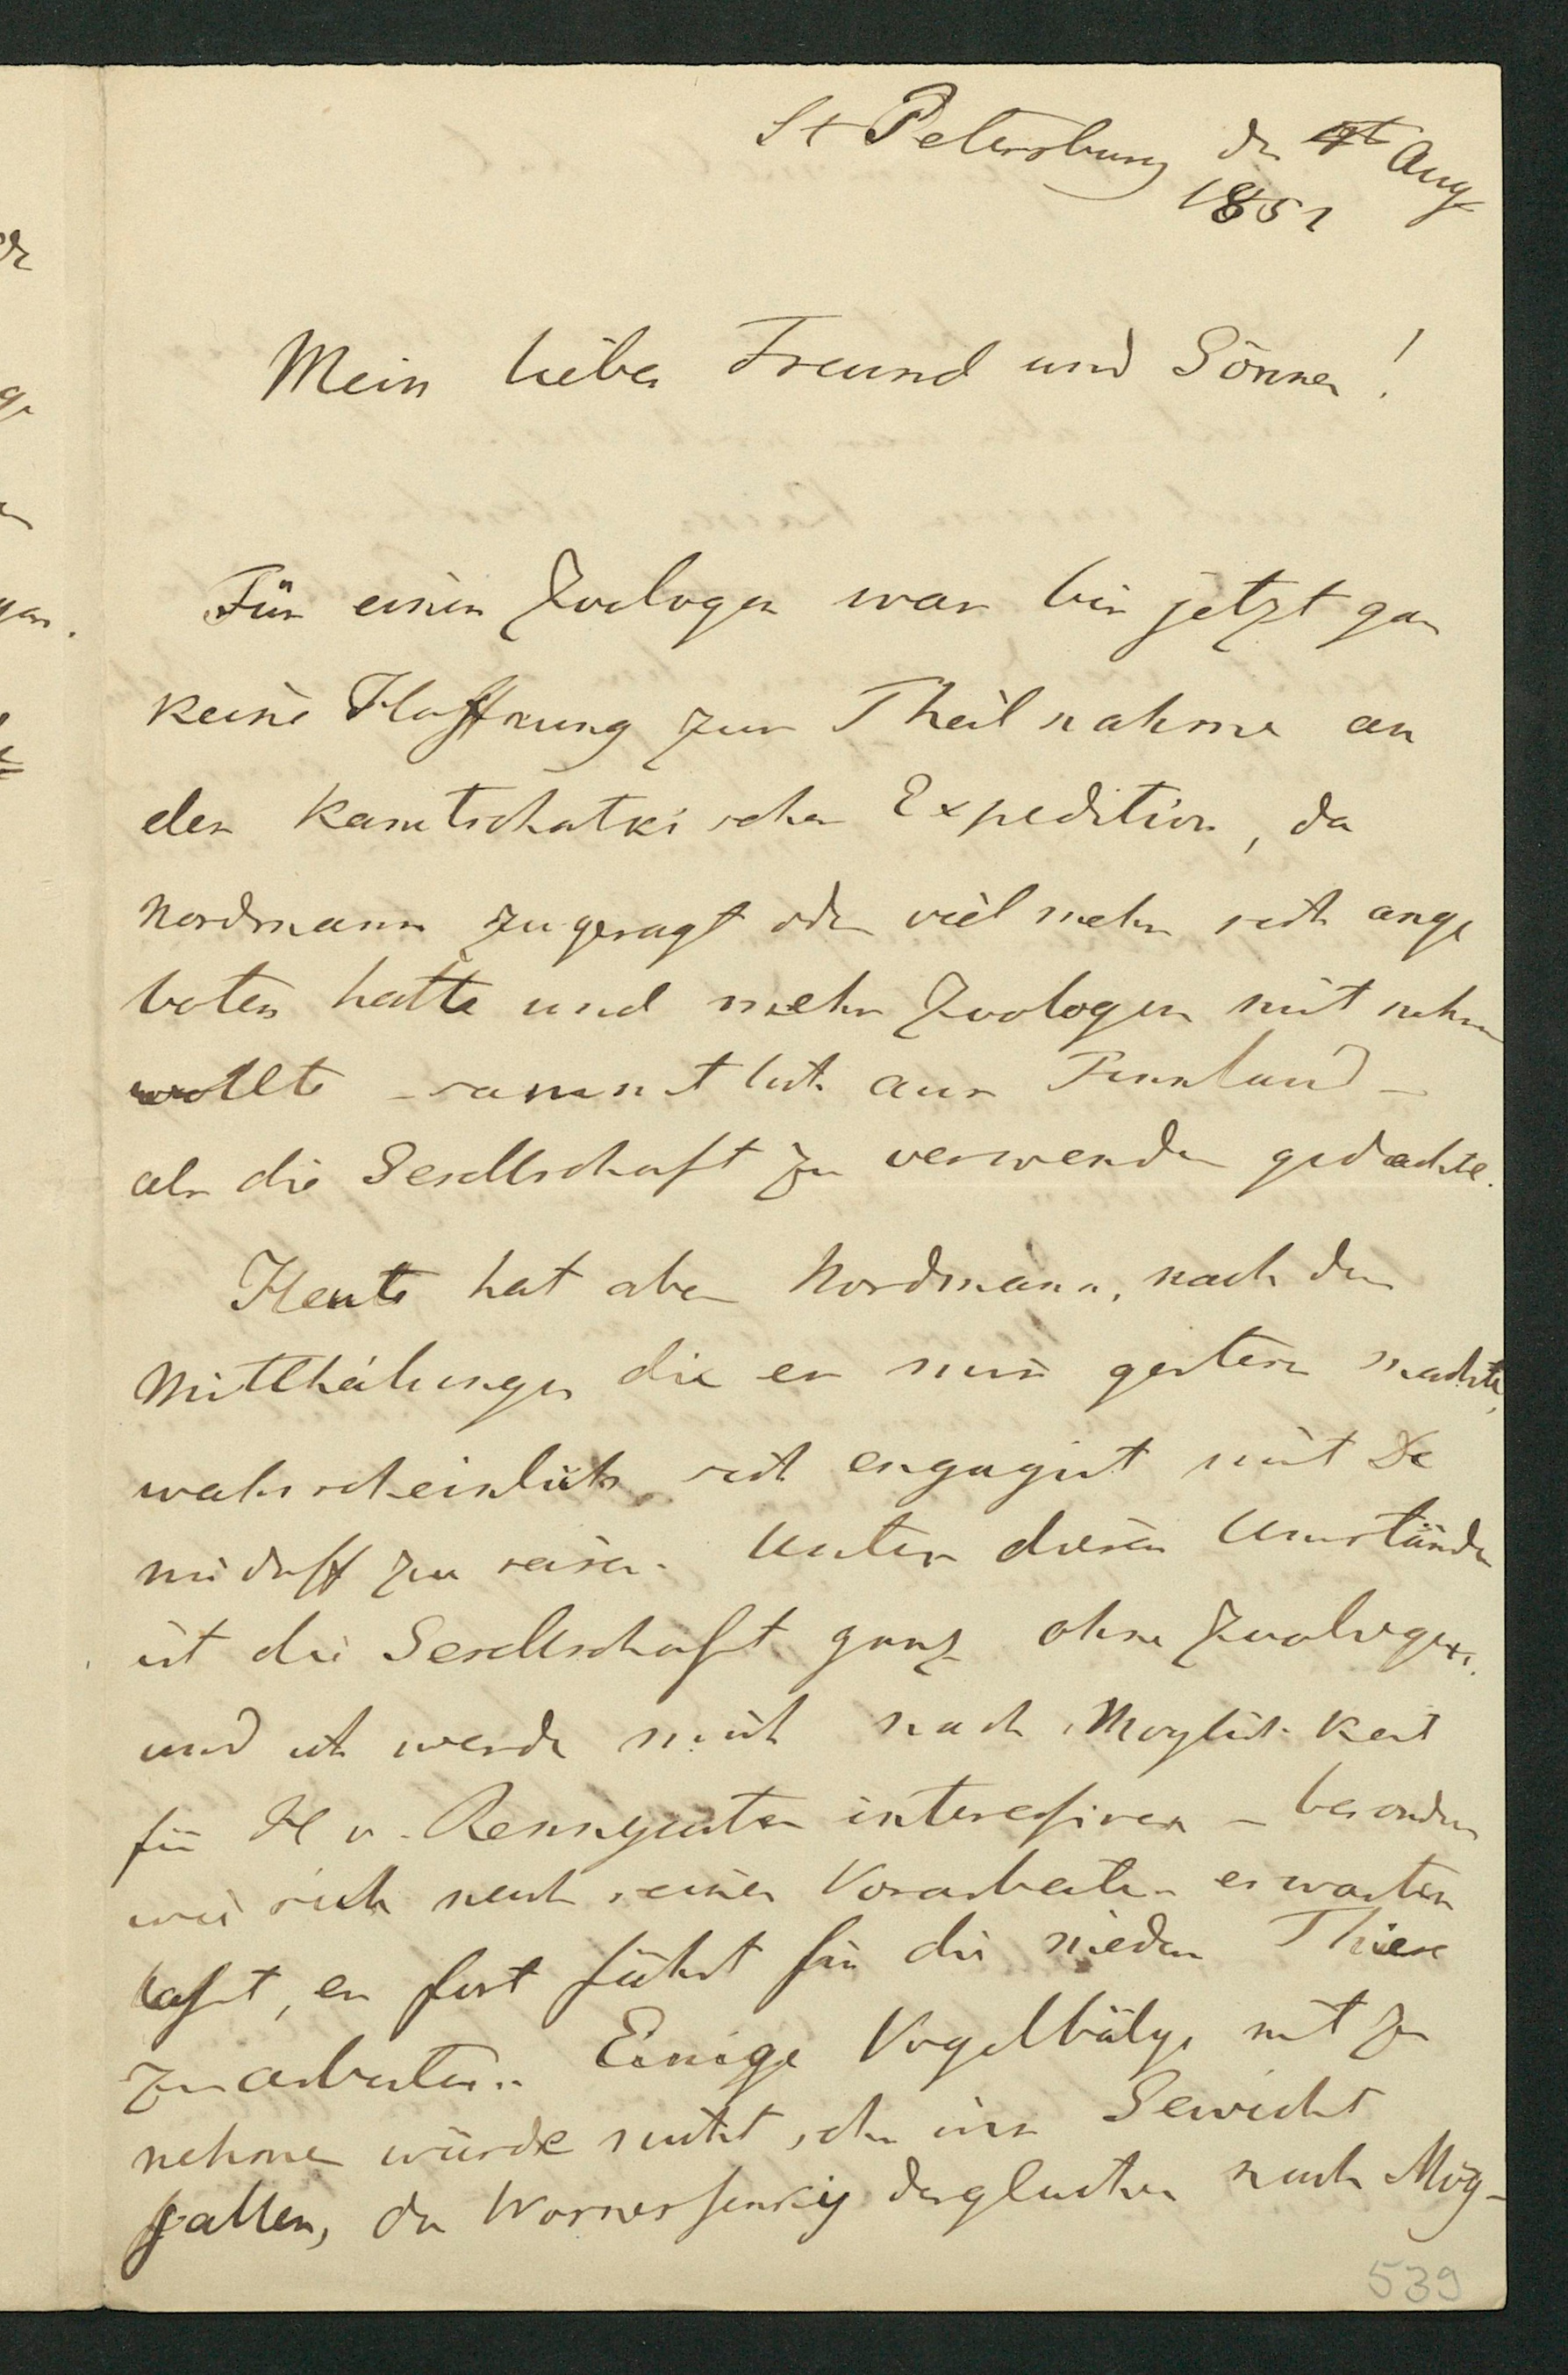 St Petersburg d. 4t Aug
1851
Mein lieber Freund und Gönner!
Für einen Zoologen war bis jetzt gar
keine Hoffnung zur Theilnahme an
der Kamtschatkischen Expedition, da
Nordmann zugesagt oder vielmehr sich ange
boten hatte und mehr Zoologen mit nehmen
wollte – sammtlich aus Finnland –
als die Gesellschaft zu verwenden gedachte.
Heute hat aber Nordmann, nach den
Mittheilungen die er mir gestern machte,
wahrscheinlich sich engagirt mit De
midoff zu reisen. Unter diesen Umständen
ist die Gesellschaft ganz ohne Zoologen.
und ich werde mich nach Moglichkeit
für H v. Rennenkampff interessiren – besonders
wie sich nach seinen Vorarbeiten erwarten
lasst, er fort fährt für die niedern Thiere
zu arbeiten. Einige Vogelbälge mit zu
nehmen würde nicht sehr ins Gewicht
fallen, da Wosnessensky dergleichen nach Mög-
539